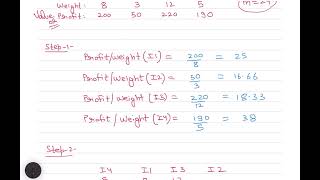 Weight: 8 3 12 5
Value or Profit: 200 50 220 190
Step-1-
Profit/weight (I1) = 200/8 = 25
Profit/weight (I2) = 50/3 = 16.66
Profit/weight (I3) = 220/12 = 18.33
Profit/weight (I4) = 190/5 = 38
Step-2-
I4 I1 I3 I2